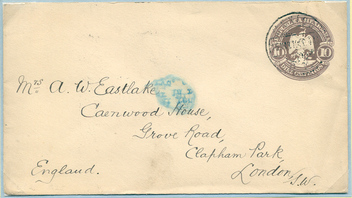 10 10
Mrs A. W. Eastlake
Caenwood House,
Grove Road,
Clapham Park,
London,
S.W.
England.